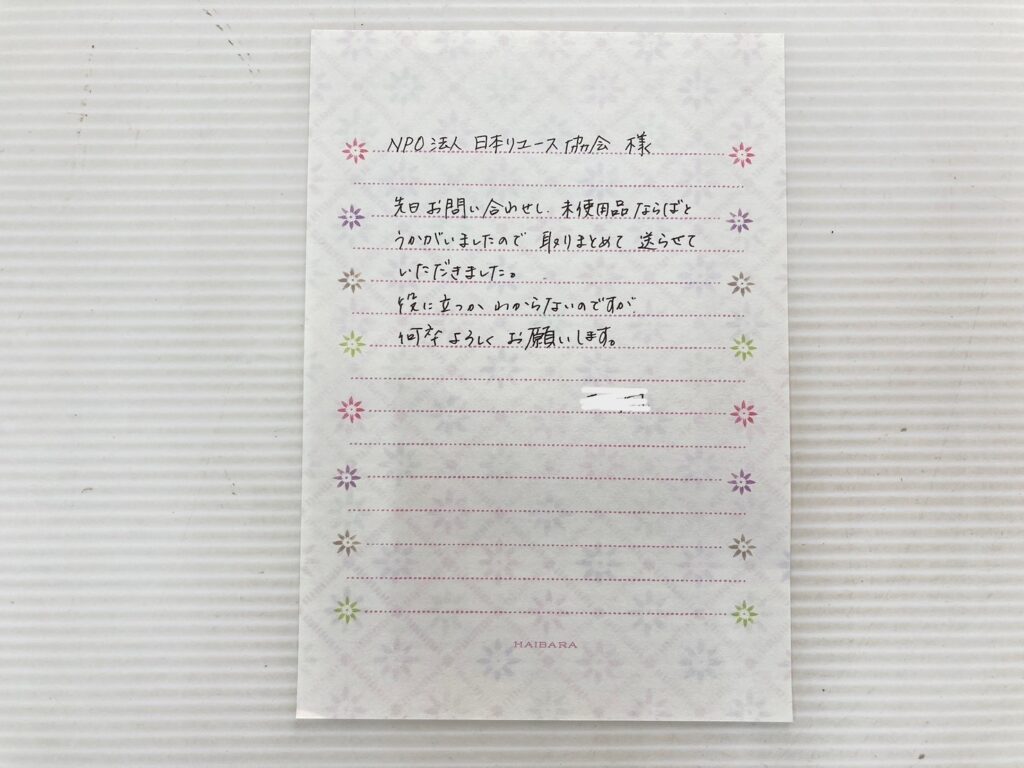 NPO法人 日本リユース協会 様
先日お問い合わせし、未使用品ならばと
うかがいましたので 取りまとめて 送らせて
いただきました。
役に立つか わからないのですが、
何卒よろしく お願いします。
HAIBARA